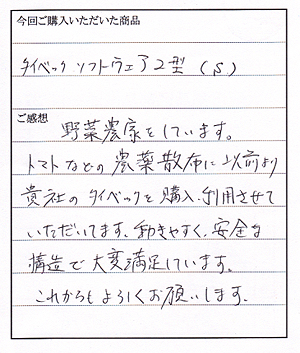 今回ご購入いただいた商品
タイベック ソフトウェア2型 (S)
ご感想
野菜農家をしています。
トマトなどの農薬散布に以前より
貴社のタイベックを購入、利用させて
いただいてます。動きやすく、安全な
構造で大変満足しています。
これからもよろしくお願いします。